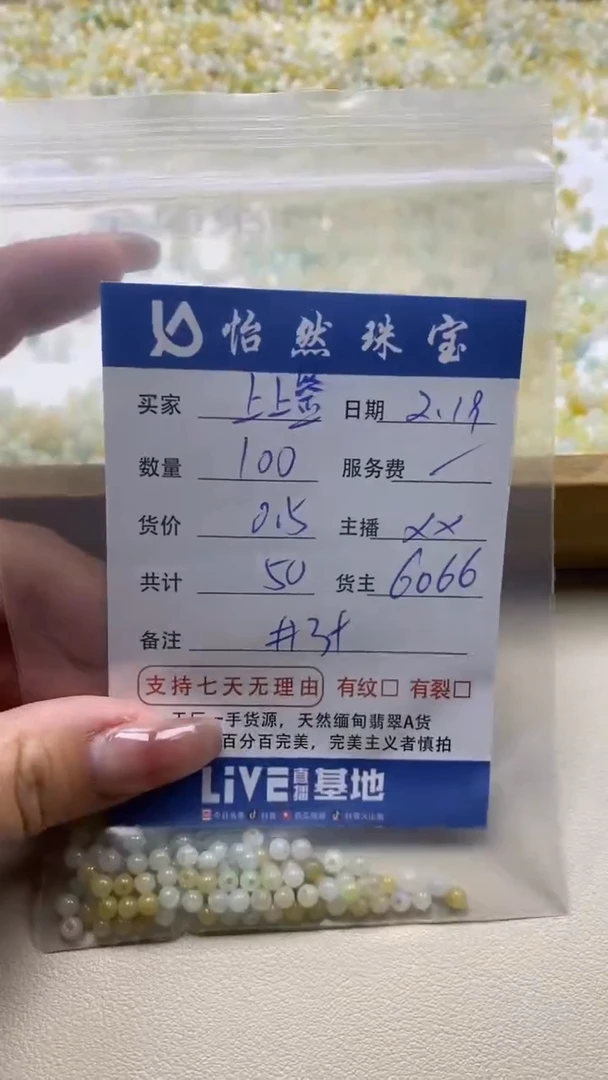 怡然珠宝
买家 上上签 日期 2.19
数量 100 服务费 /
货价 0.5 主播 xx
共计 50 货主 6066
备注
支持七天无理由 有纹□ 有裂□
一手货源，天然缅甸翡翠A货
百分百完美，完美主义者慎拍
LiVE直播基地
今日头条 抖音 西瓜视频 抖音火山版